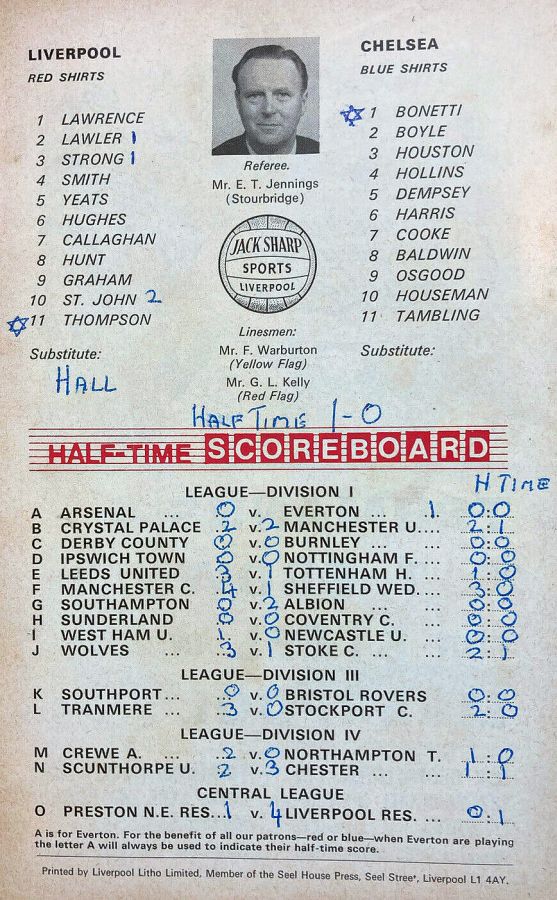 LIVERPOOL
RED SHIRTS
1 LAWRENCE
2 LAWLER 1
3 STRONG 1
4 SMITH
5 YEATS
6 HUGHES
7 CALLAGHAN
8 HUNT
9 GRAHAM
10 ST. JOHN 2
11 THOMPSON
Substitute:
HALL
Referee.
Mr. E. T. Jennings
(Stourbridge)
JACK SHARP
SPORTS
LIVERPOOL
Linesmen:
Mr. F. Warburton
(Yellow Flag)
Mr. G. L. Kelly
(Red Flag)
CHELSEA
BLUE SHIRTS
1 BONETTI
2 BOYLE
3 HOUSTON
4 HOLLINS
5 DEMPSEY
6 HARRIS
7 COOKE
8 BALDWIN
9 OSGOOD
10 HOUSEMAN
11 TAMBLING
Substitute:
HALF TIME 1-0
HALF-TIME SCOREBOARD
LEAGUE—DIVISION I H TIME
A ARSENAL ... 0 v. EVERTON ... 1 0:0
B CRYSTAL PALACE 2 v. 2 MANCHESTER U.... 2:1
C DERBY COUNTY 0 v. 0 BURNLEY ... ... 0:0
D IPSWICH TOWN 0 v. 0 NOTTINGHAM F. ... 0:0
E LEEDS UNITED 3 v. 1 TOTTENHAM H. ... 1:0
F MANCHESTER C. 4 v. 1 SHEFFIELD WED.... 3:0
G SOUTHAMPTON 0 v. 2 ALBION ... ... 0:0
H SUNDERLAND 0 v. 0 COVENTRY C. ... 0:0
I WEST HAM U. 1 v. 0 NEWCASTLE U. ... 0:0
J WOLVES ... 3 v. 1 STOKE C. ... ... 2:1
LEAGUE—DIVISION III
K SOUTHPORT... ..0 v. 0 BRISTOL ROVERS 0:0
L TRANMERE ... ..3 v. 0 STOCKPORT C. 2:0
LEAGUE—DIVISION IV
M CREWE A. ... ..2 v. 0 NORTHAMPTON T. 1:0
N SCUNTHORPE U. 2 v. 3 CHESTER ... ... 1:1
CENTRAL LEAGUE
O PRESTON N.E. RES...1 v. 4 LIVERPOOL RES. ... 0:1
A is for Everton. For the benefit of all our patrons—red or blue—when Everton are playing
the letter A will always be used to indicate their half-time score.
Printed by Liverpool Litho Limited, Member of the Seel House Press, Seel Street, Liverpool L1 4AY.